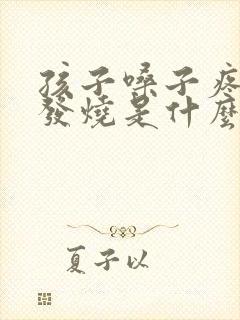 孩子嗓子疼
發燒是什麼
夏子以